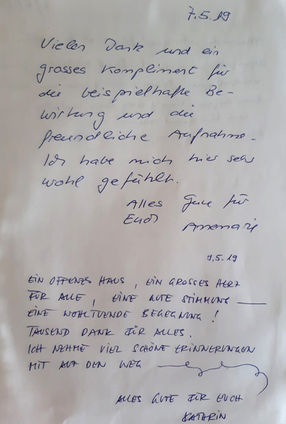 7.5.19
Vielen Dank und ein
grosses Kompliment für
die beispielhafte Be-
wirtung und die
freundliche Aufnahme.
Ich habe mich hier sehr
wohl gefühlt.
Alles Gute für
Euch
Annemarie
9.5.19
EIN OFFENES HAUS, EIN GROSSES HERZ
FÜR ALLE, EINE GUTE STIMMUNG —
EINE WOHLTUENDE BEGEGNUNG!
TAUSEND DANK FÜR ALLES.
ICH NEHME VIEL SCHÖNE ERINNERUNGEN
MIT AUF DEN WEG
ALLES GUTE FÜR EUCH
KATHRIN